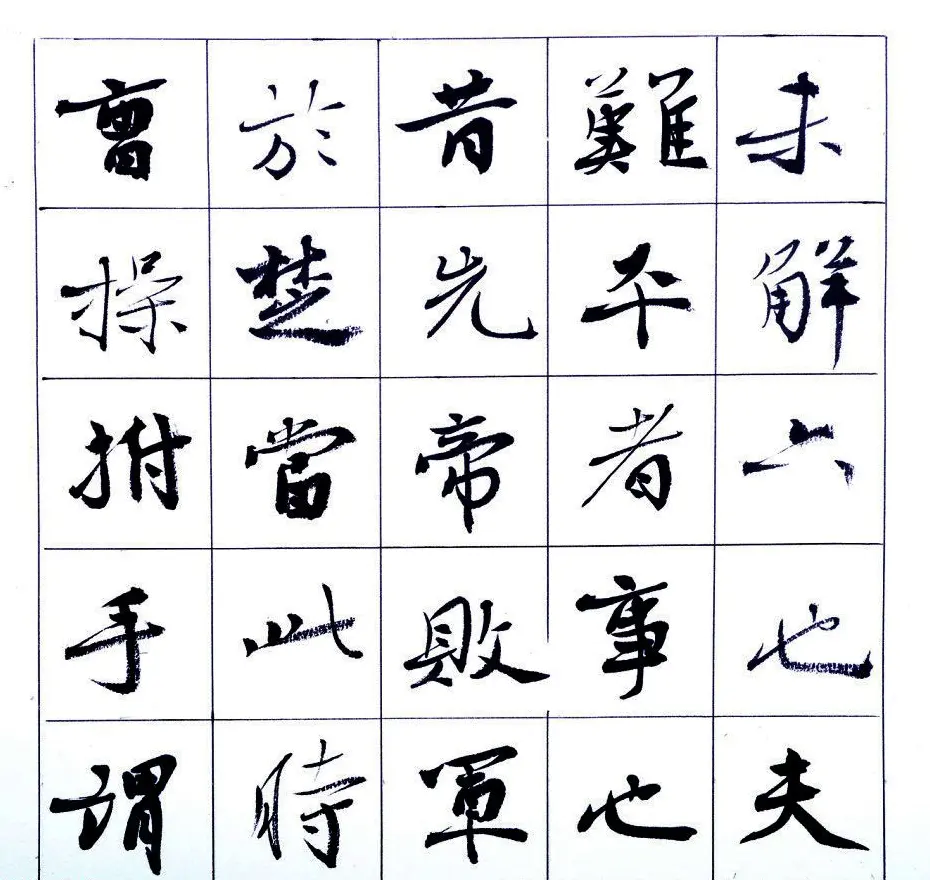 未解六也夫
難平者事也
昔先帝敗軍
於楚當此時
曺操拊手謂